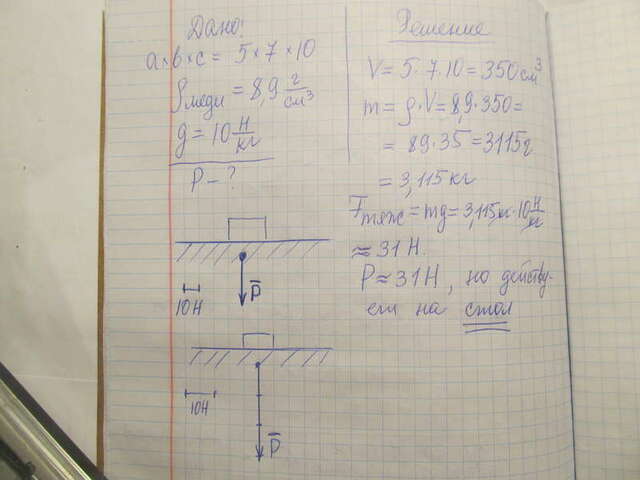 Дано:
a×b×c = 5×7×10
ρмеди = 8,9 г/см³
g = 10 Н/кг
P – ?
10Н
P̄
10Н
P̄
Решение
V = 5·7·10 = 350 см³
m = ρ·V = 8,9·350 =
= 89·35 = 3115 г
= 3,115 кг
Fтяж = mg = 3,115 кг·10 Н/кг
≈ 31 Н.
P ≈ 31 Н, но действу-
ет на стол